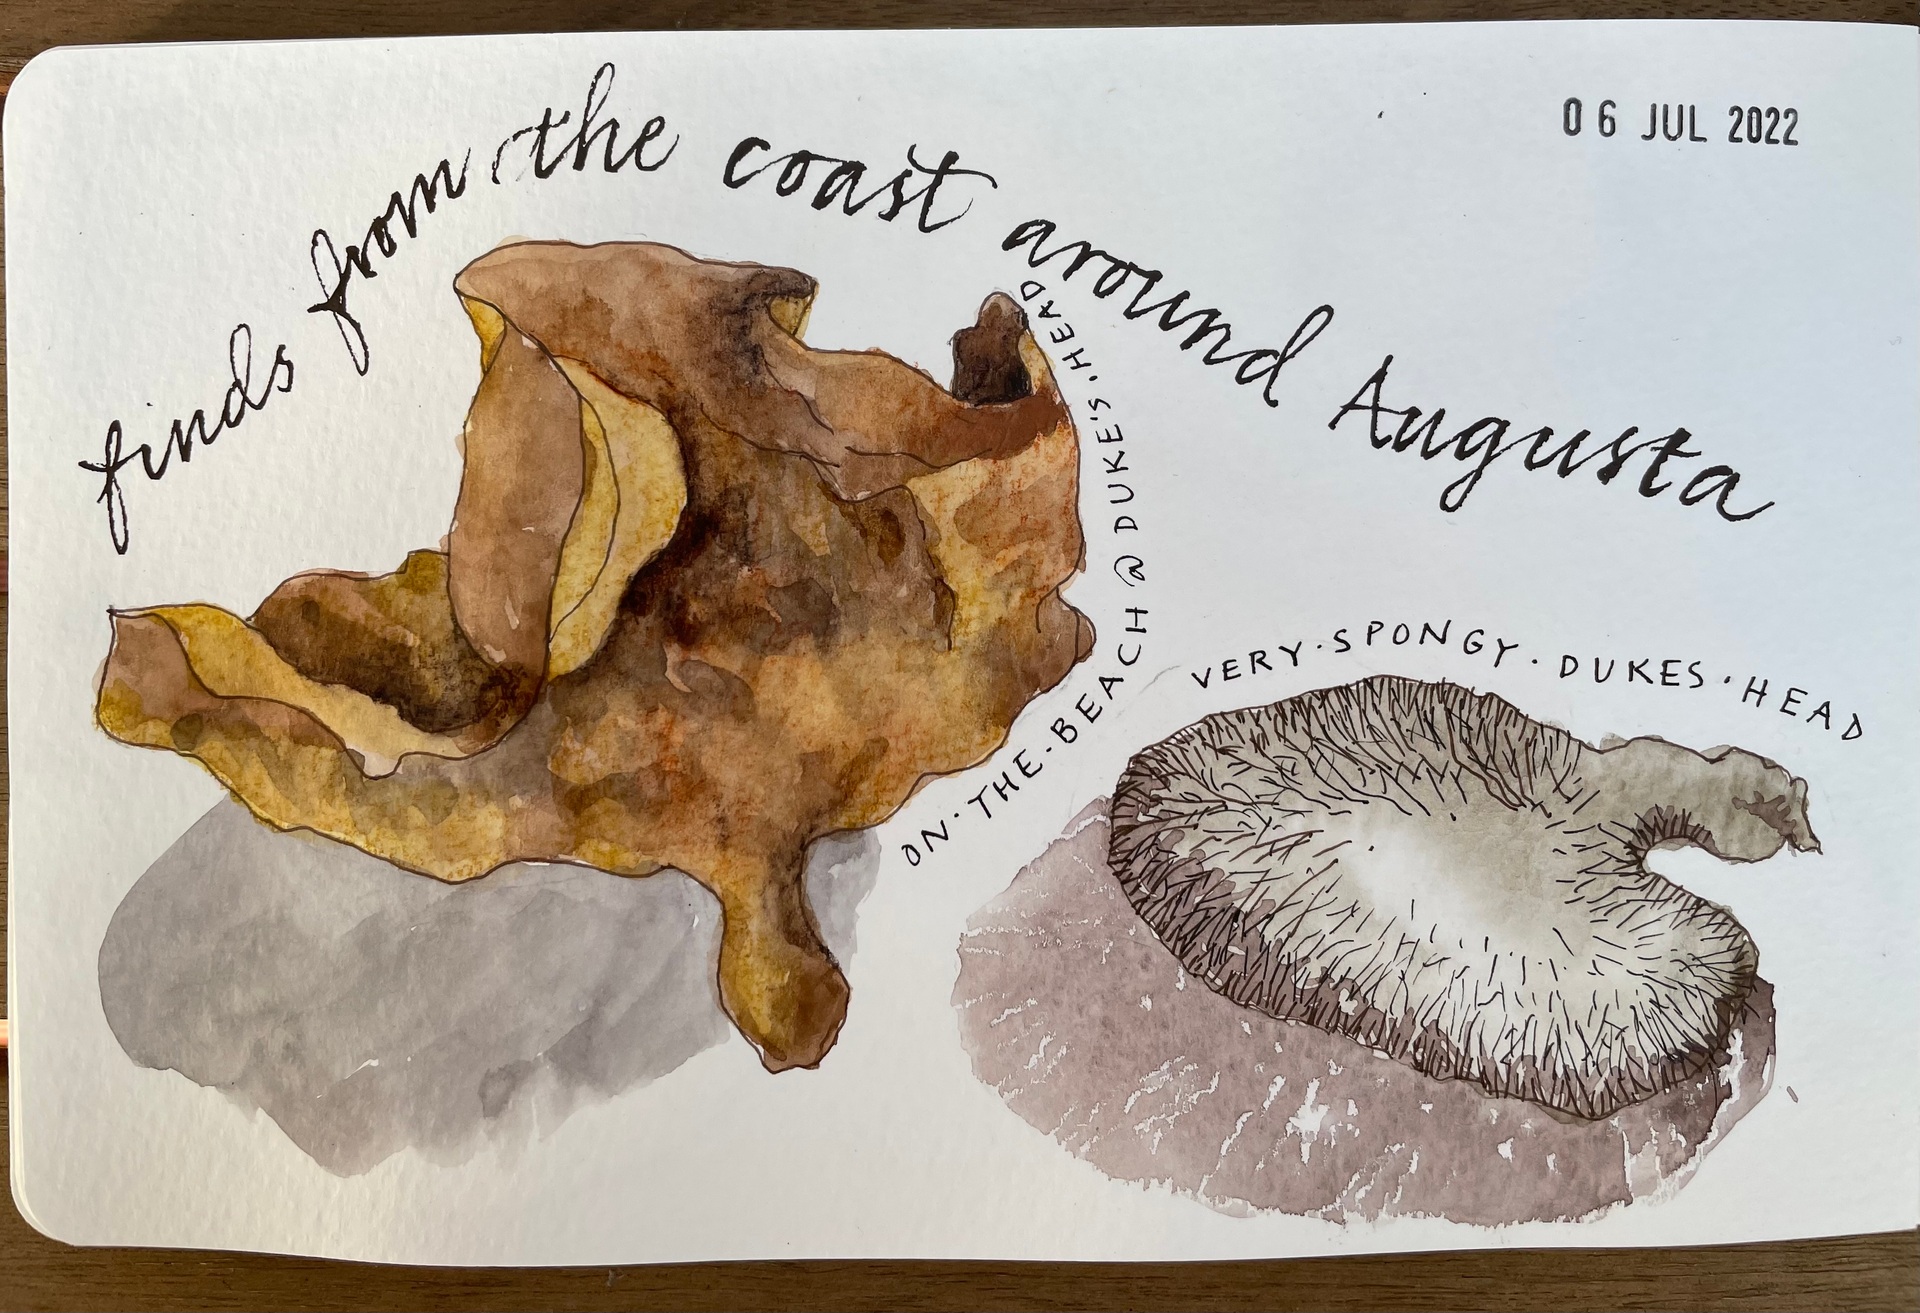 finds from the coast around Augusta
06 JUL 2022
ON·THE·BEACH @ DUKE'S·HEAD
VERY·SPONGY·DUKES·HEAD